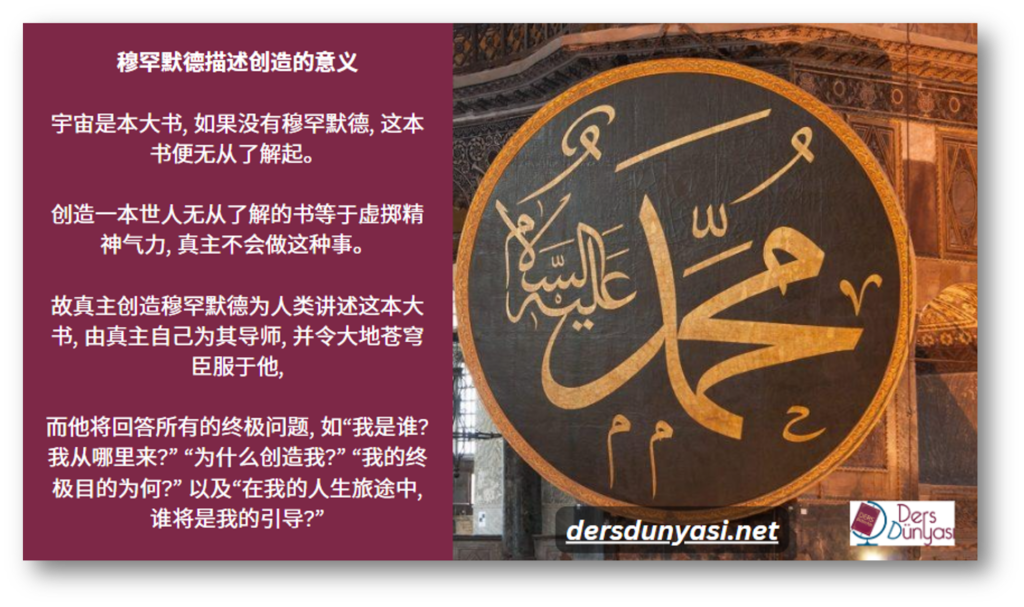 穆罕默德描述创造的意义
宇宙是本大书, 如果没有穆罕默德, 这本
书便无从了解起。
创造一本世人无从了解的书等于虚掷精
神气力, 真主不会做这种事。
故真主创造穆罕默德为人类讲述这本大
书, 由真主自己为其导师, 并令大地苍穹
臣服于他,
而他将回答所有的终极问题, 如“我是谁?
我从哪里来?” “为什么创造我?” “我的终
极目的为何?” 以及“在我的人生旅途中,
谁将是我的引导?”
محمد
عليه السلام
dersdunyasi.net
Ders
Dünyası